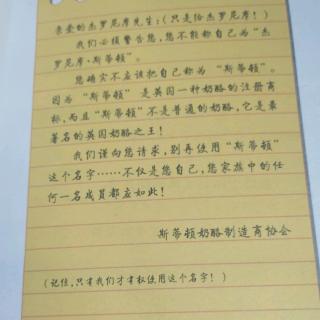 亲爱的杰罗尼摩先生:(只是给杰罗尼摩!)
我们必须警告您,您不能称自己为“杰
罗尼摩·斯蒂顿”。
您确实不应该把自己称为“斯蒂顿”。
因为“斯蒂顿”是英国一种奶酪的注册商
标,而且“斯蒂顿”不是普通的奶酪,它是最
著名的英国奶酪之王!
我们谨向您请求,别再使用“斯蒂顿”
这个名字……不仅是您自己,您家族中的任
何一名成员都应如此!
斯蒂顿奶酪制造商协会
(记住,只有我们才有权使用这个名字!)